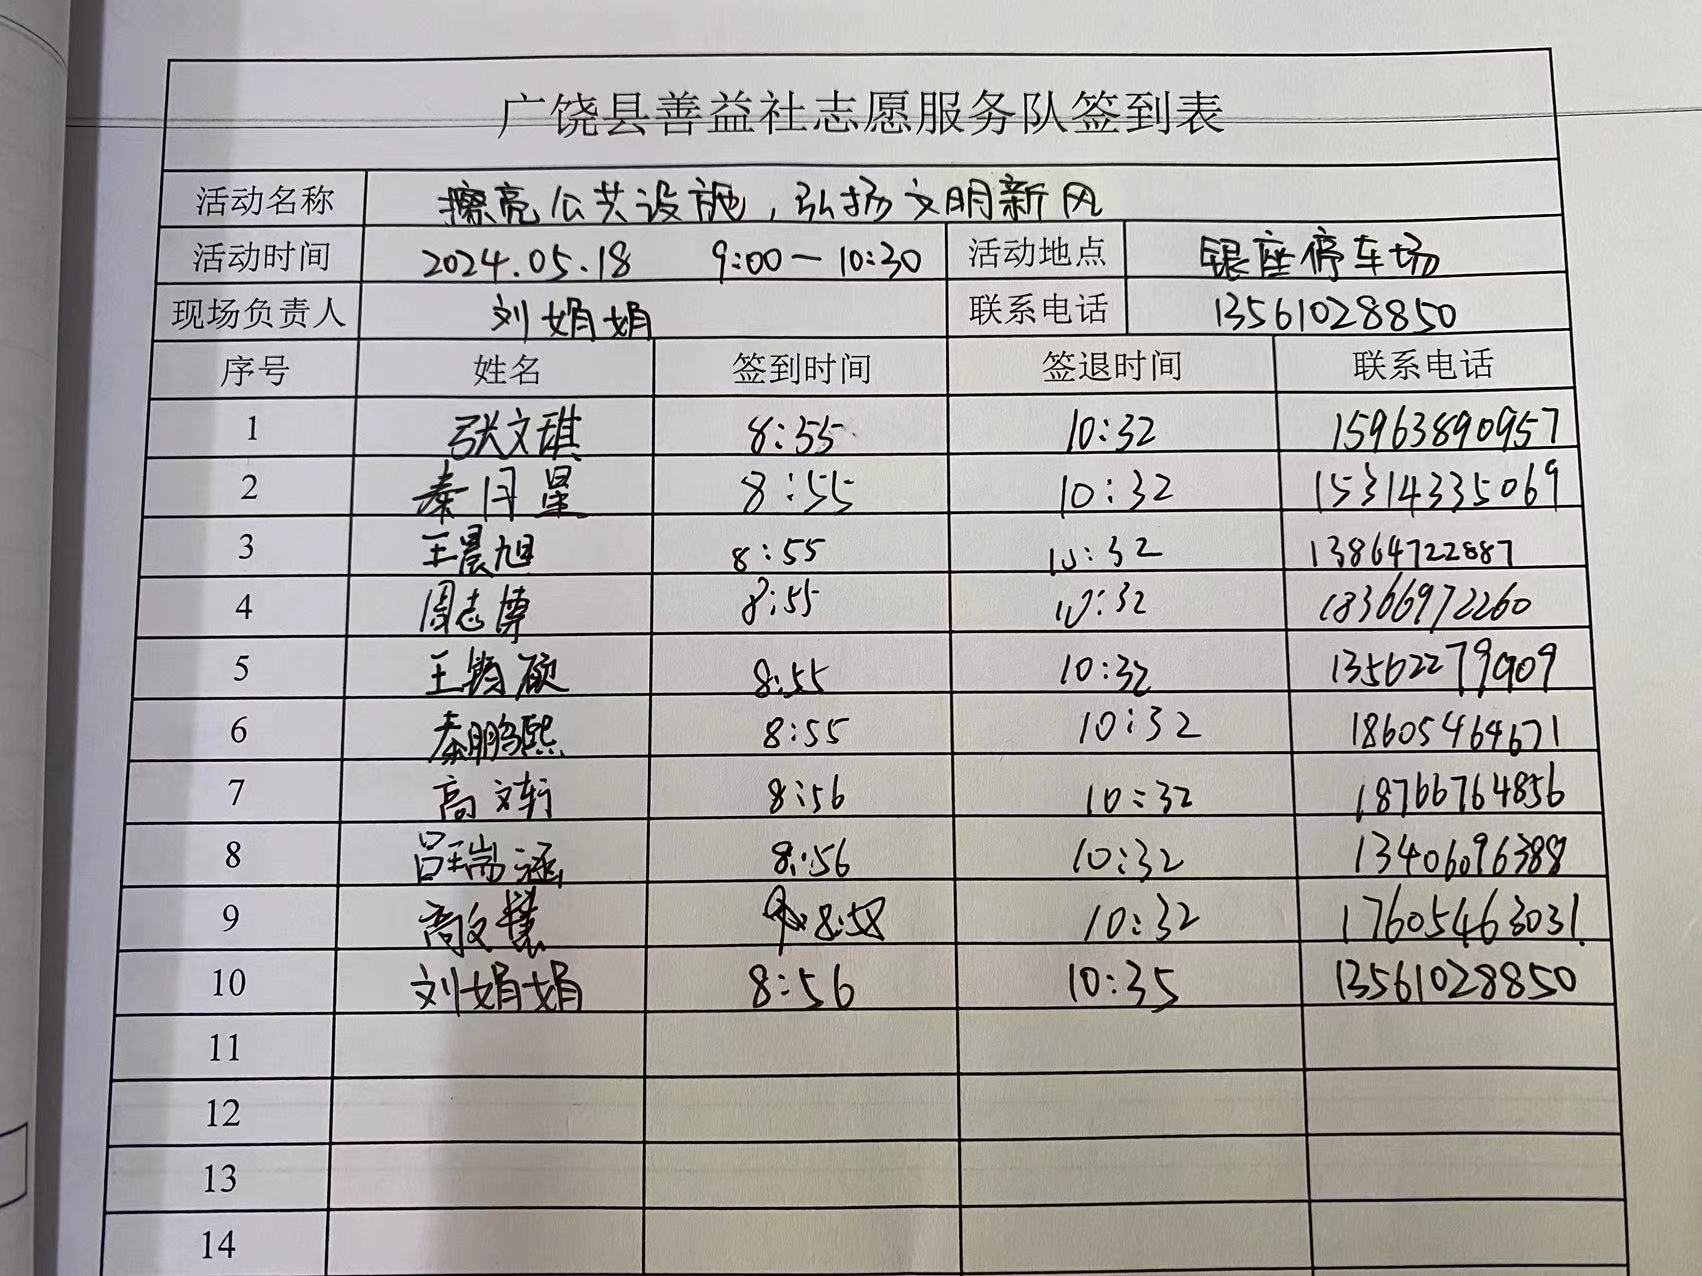 广饶县善益社志愿服务队签到表
活动名称 擦亮公共设施，弘扬文明新风
活动时间 2024.05.18 9:00—10:30 活动地点 银座停车场
现场负责人 刘娟娟 联系电话 13561028850
序号 姓名 签到时间 签退时间 联系电话
1 张文琪 8:55 10:32 15963890957
2 秦月星 8:55 10:32 15314335069
3 王晨旭 8:55 10:32 13864722887
4 周志博 8:55 10:32 18366972260
5 8:55 10:32 13562279909
6 秦鹏熙 8:55 10:32 18605464671
7 高文轩 8:56 10:32 18766764856
8 吕瑞涵 8:56 10:32 13406096388
9 8:58 10:32 17605463031
10 刘娟娟 8:56 10:35 13561028850
11
12
13
14